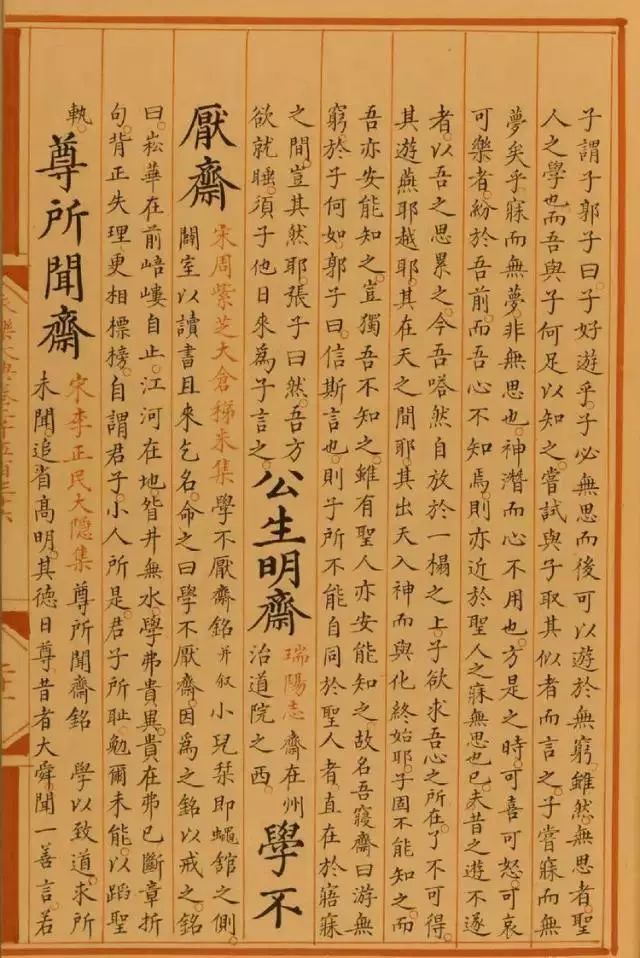 子謂子郭子曰。子好遊乎。子必無思而後可以遊於無窮。雖然。無思者。聖
人之學也。而吾與子何足以知之。嘗試與子取其似者而言之。子嘗寐而無
夢矣乎。寐而無夢。非無思也。神潛而心不用也。方是之時。可喜可怒。可哀
可樂者。紛於吾前。而吾心不知焉。則亦近於聖人之寐無思也已。夫昔之遊不遂
者。以吾之思累之。今吾嗒然自放於一榻之上。子欲求吾心之所在。了不可得。
其遊燕耶越耶。其在天之間耶。其出天入神而與化終始耶。子固不能知之。而
吾亦安能知之。豈獨吾不知之。雖有聖人亦安能知之。故名吾寢齋曰游無
窮。於子何如。郭子曰。信斯言也。則子所不能自同於聖人者。直在於寤寐
之間。豈其然耶。張子曰。然。吾方
欲就睡。須子他日來為子言之。
公生明齋
瑞陽志齋在州
治道院之西。
學不
厭齋
宋周紫芝大倉稊米集學不厭齋銘并叙小兒栞即蠅館之側。
闢室以讀書。且來乞名。命之曰學不厭齋。因為之銘以戒之。銘
曰。崧華在前。峿嶁自止。江河在地。眢井無水。學弗貴異。貴在弗已。斷章折
句。背正失理。更相標榜。自謂君子。小人所是。君子所耻。勉爾未能。以蹈聖
執。
尊所聞齋
宋李正民大隱集尊所聞齋銘 學以致道。求所
未聞。追省高明。其德日尊。昔者大舜。聞一善言。若